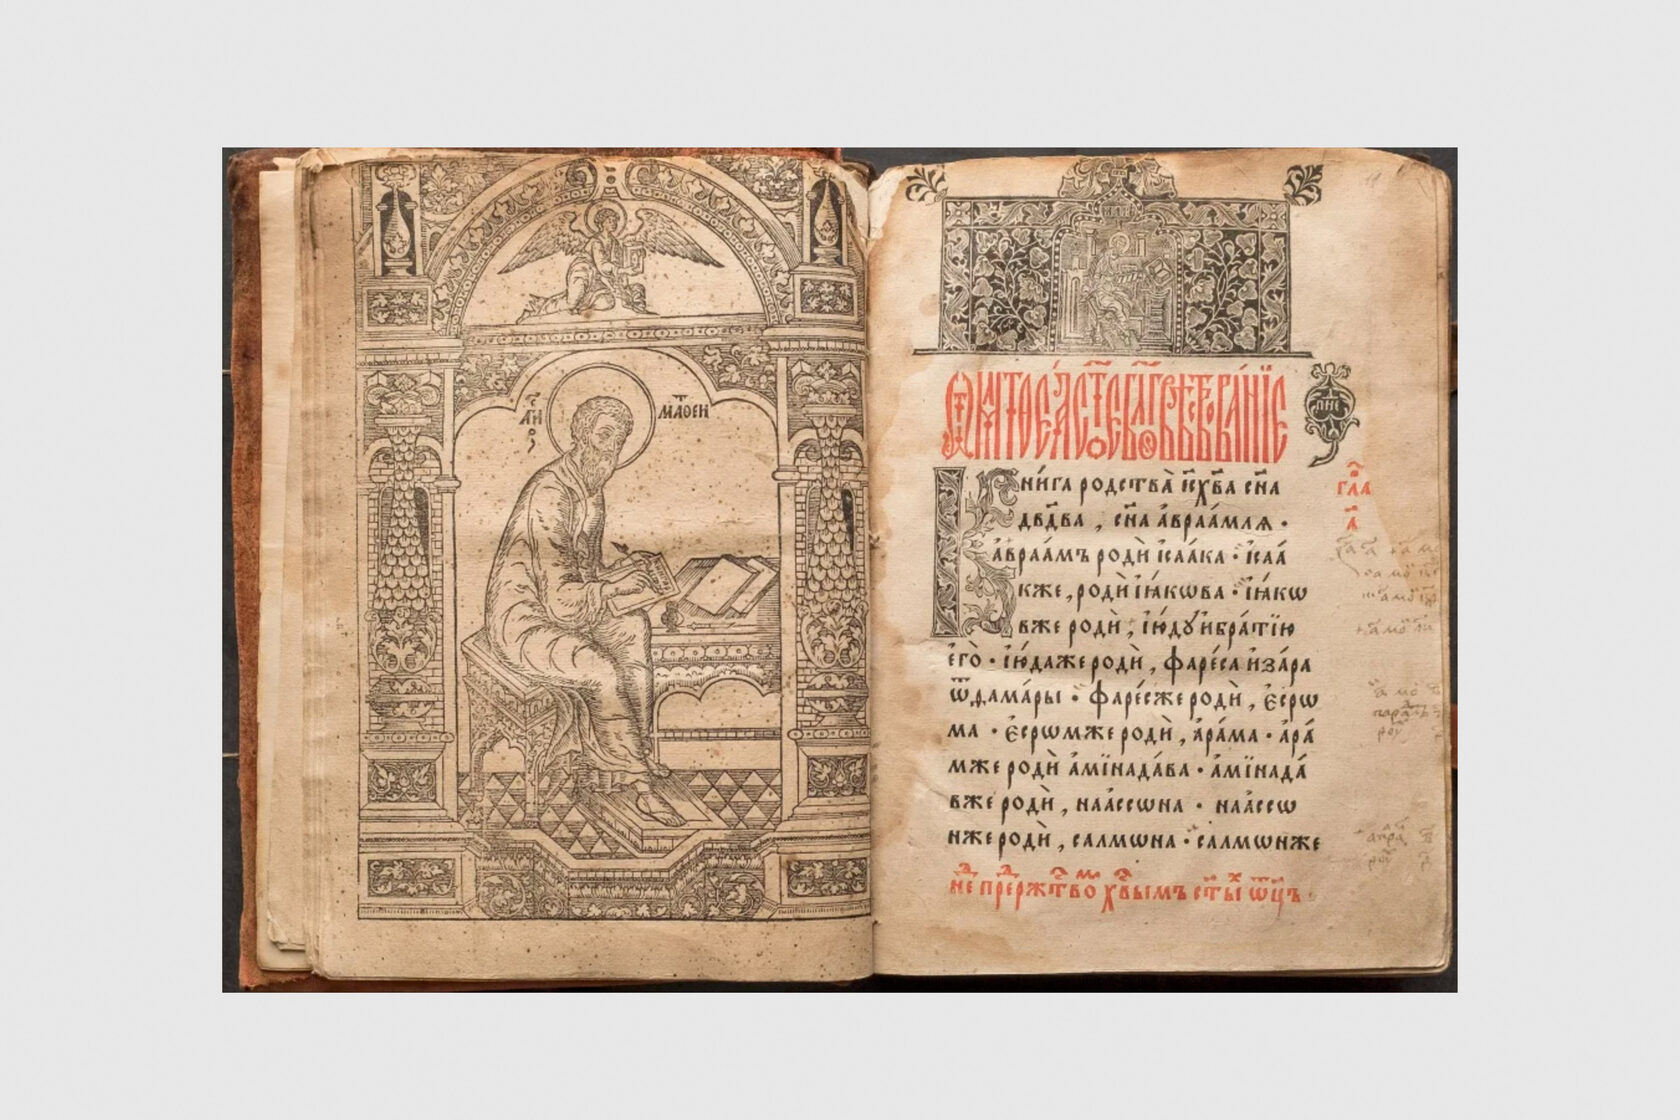 а҆гі́ос
матѳеи
ѿ матѳеа ст҃ое бл҃говѣствованїе
пне
Кни́га родства̀ і҆с хв҃а сн҃а
дв҃два , сн҃а а҆враа́млѧ ·
а҆враа́мъ родѝ і҆саа́ка · і҆саа́
кже , родѝ і҆ꙗ́кѡва · і҆ꙗ́кѡ
вже родѝ , і҆ю́дꙋ и҆бра́тїю
е҆го̀ · і҆ю́даже родѝ , фаре́са и҆за́ра
ѿдама́ры · фаре́сже родѝ , є҆срѡ
ма · є҆срѡмже родѝ , а҆ра́ма · а҆ра́
мже родѝ а҆мїнада́ва · а҆мїнада́
вже родѝ , наа́ссѡна · наа́ссѡ
нже родѝ , салмѡна · салмѡнже
гла
а҃
не прержтво хв҃ымъ ст҃ы ѡц҃ъ ·